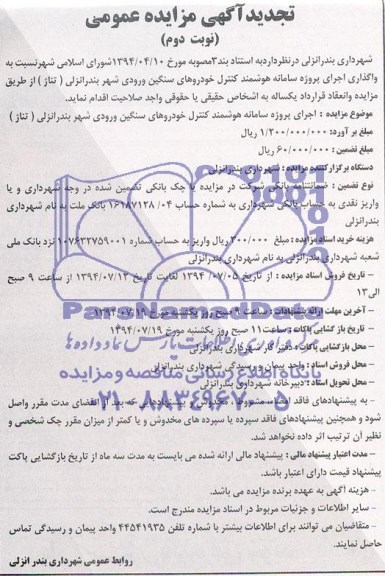 تجدیدآگهی مزایده عمومی
(نوبت دوم)
شهرداری بندرانزلی درنظرداردبه استناد بند۳مصوبه مورخ ۱۳۹۴/۰۴/۱۰شورای اسلامی شهرنسبت به
واگذاری اجرای پروژه سامانه هوشمند کنترل خودروهای سنگین ورودی شهر بندرانزلی ( تناژ ) از طریق
مزایده وانعقاد قرارداد یکساله به اشخاص حقیقی یا حقوقی واجد صلاحیت اقدام نماید.
موضوع مزایده : اجرای پروژه سامانه هوشمند کنترل خودروهای سنگین ورودی شهر بندرانزلی ( تناژ )
مبلغ بر آورد: ۱/۲۰۰/۰۰۰/۰۰۰ ریال
مبلغ تضمین : ۶۰/۰۰۰/۰۰۰ ریال
دستگاه برگزارکننده مزایده : شهرداری بندرانزلی
نوع تضمین : ضمانتنامه بانکی شرکت در مزایده یا چک بانکی تضمین شده در وجه شهرداری و یا
واریز نقدی به حساب بانکی شهرداری به شماره حساب ۱۶۱۸۷۱۲۸/۰۴ بانک ملت به نام شهرداری
بندرانزلی
هزینه خرید اسناد مزایده : مبلغ ۲۰۰/۰۰۰ ریال واریز به حساب شماره ۱۰۷۶۳۲۷۵۹۰۰۱ نزد بانک ملی
شعبه شهرداری بندرانزلی به نام شهرداری بندرانزلی
- تاریخ فروش اسناد مزایده : از تاریخ ۱۳۹۴/۰۷/۰۵ لغایت تاریخ ۱۳۹۴/۰۷/۱۳ از ساعت ۹ صبح
الی۱۳
- آخرین مهلت ارائه پیشنهادات : ساعت ۹ صبح روز یکشنبه مورخ ۱۳۹۴/۰۷/۱۹
- تاریخ بازگشایی پاکات : ساعت ۱۱ صبح روز یکشنبه مورخ ۱۳۹۴/۰۷/۱۹
- محل بازگشایی پاکت : دفتر کار شهرداری بندرانزلی
- محل فروش اسناد : واحد پیمان و رسیدگی شهرداری بندرانزلی
- محل تحویل اسناد : دبیرخانه شهرداری بندرانزلی
- به پیشنهادهای فاقد امضاء، مشروط، مخدوش و پیشنهادهایی که بعد از انقضای مدت مقرر واصل
شود و همچنین پیشنهادهای فاقد سپرده یا سپرده های مخدوش و یا کمتر از میزان مقرر چک شخصی و
نظیر آن ترتیب اثر داده نخواهد شد.
- مدت اعتبار پیشنهاد مالی : پیشنهاد مالی ارائه شده می بایست به مدت سه ماه از تاریخ بازگشایی پاکت
پیشنهاد قیمت دارای اعتبار باشد.
- هزینه آگهی به عهده برنده مزایده می باشد.
- سایر اطلاعات و جزئیات مربوط در اسناد مزایده مندرج است.
- متقاضیان می توانند برای اطلاعات بیشتر با شماره تلفن ۴۴۵۴۱۹۳۵ واحد پیمان و رسیدگی تماس
حاصل نمایند.
روابط عمومی شهرداری بندر انزلی
ParsNamadData
پایگاه اطلاع رسانی مناقصه و مزایده
۰۲۱-۸۸۳۴۹۶۷۰